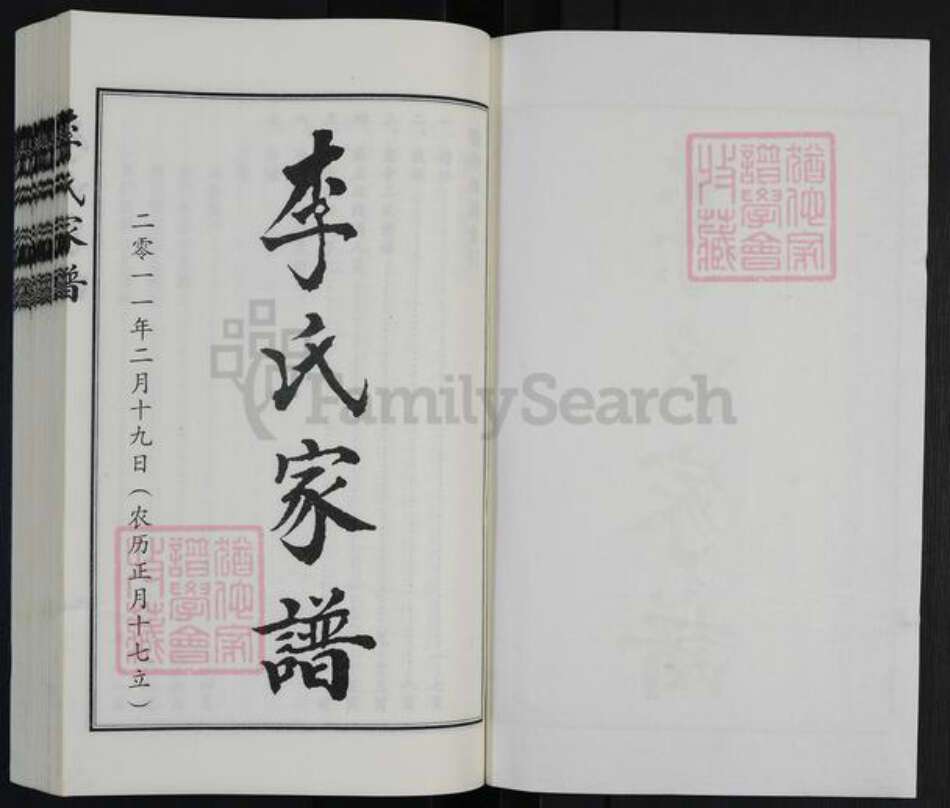 猶他家
譜學會
收藏
李氏家譜
二零一一年二月十九日（农历正月十七立）
猶他家
譜學會
收藏
李氏家譜
FamilySearch